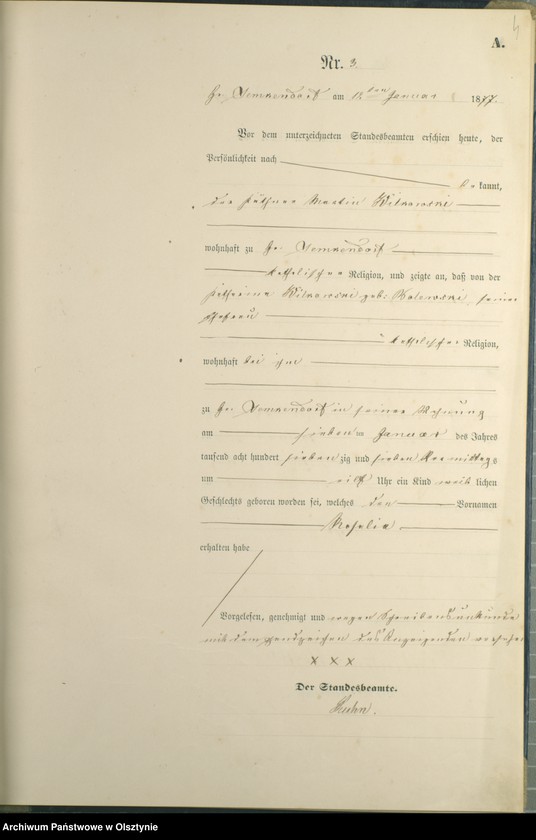 4
A.
Nr. 3.
Gr. am 12ten Januar 1877.
Vor dem unterzeichneten Standesbeamten erschien heute, der
Persönlichkeit nach
be kannt,
der Käthner Martin Wilkowski
wohnhaft zu Gr.
katholischer Religion, und zeigte an, daß von der
Wilkowski geb. seiner
Ehefrau
katholischer Religion,
wohnhaft bei ihm
zu Gr. in seiner Wohnung
am sieben ten Januar des Jahres
tausend acht hundert sieben zig und sieben Vor mittags
um elf Uhr ein Kind weib lichen
Geschlechts geboren worden sei, welches den Vornamen
Rosalia
erhalten habe
Vorgelesen, genehmigt und wegen Schreibensunkunde
mit dem Handzeichen des Anzeigenden versehen
x x x
Der Standesbeamte.
Kuhn.
Archiwum Państwowe w Olsztynie